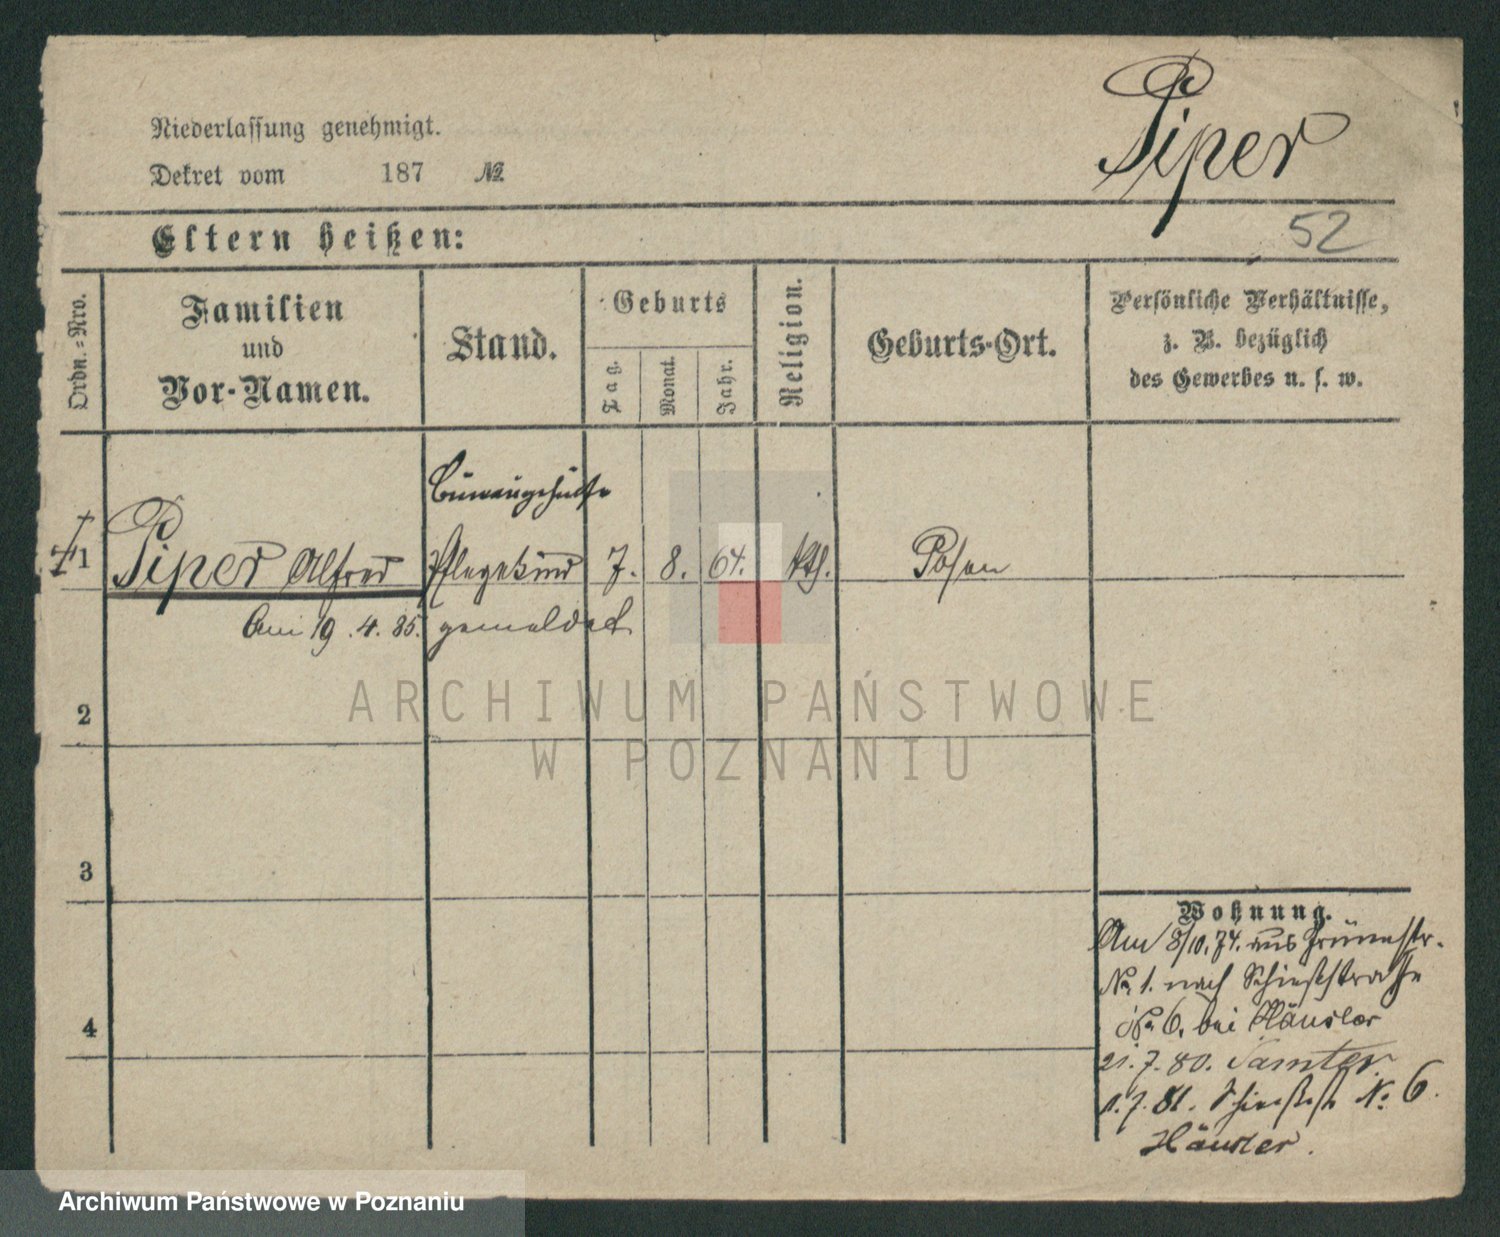 Piper
Niederlassung genehmigt.
Dekret vom 187 №
52
Eltern heißen:
Ordn.=Nro.
Familien
und
Vor-Namen.
Stand.
Geburts
Tag.
Monat.
Jahr.
Religion.
Geburts-Ort.
Persönliche Verhältnisse,
z. B. bezüglich
des Gewerbes u. s. w.
Büreaugehülfe
1 Piper Alfred Pflegekind 7. 8. 64. kth. Posen
Am 19.4.85. gemeldet
2
3
4
Wohnung.
Am 8/10.74. aus Grünestr.
No 1. nach Schießstraße
No 6. bei Häusler
21.7.80. Samter
1.7.81. Schießstr No 6.
Häusler.
ARCHIWUM PAŃSTWOWE
W POZNANIU
Archiwum Państwowe w Poznaniu